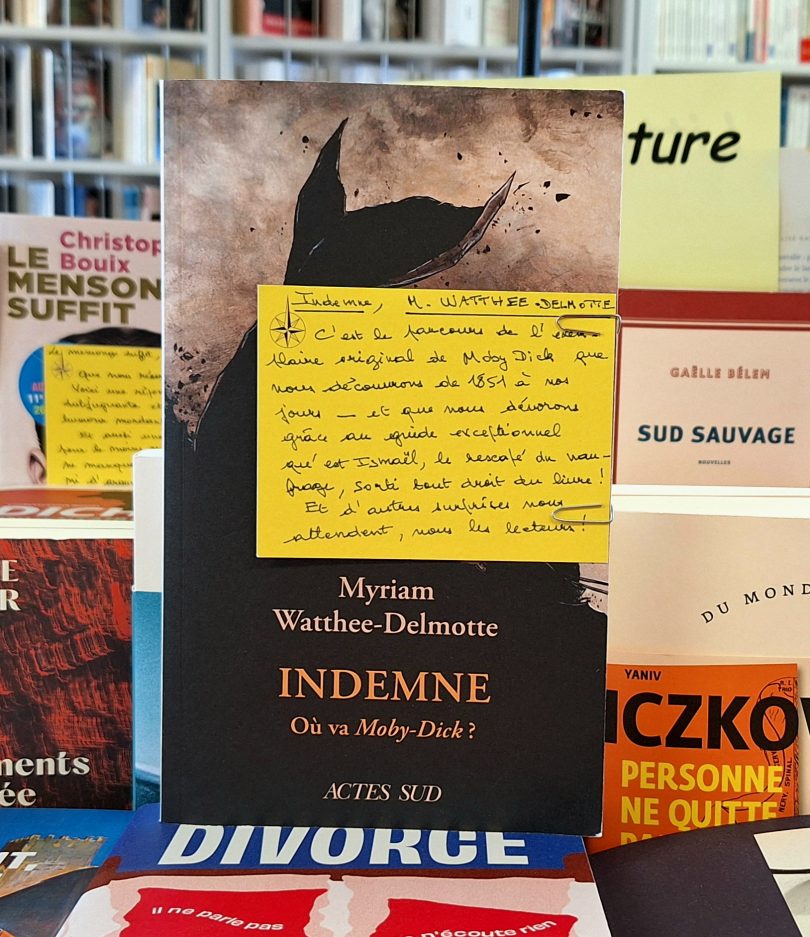 ture
Christop
Bouix
LE
MENSON
SUFFIT
Indemne, M. WATTHEE-DELMOTTE
C'est le parcours de l'exem-
plaire original de Moby Dick que
nous découvrons de 1851 à nos
jours — et que nous dévorons
grâce au guide exceptionnel
qu'est Ismaël, le rescapé du nau-
frage, sorti tout droit du livre !
Et d'autres surprises nous
attendent, nous les lecteurs !
Myriam
Watthee-Delmotte
INDEMNE
Où va Moby-Dick ?
ACTES SUD
GAËLLE BÉLEM
SUD SAUVAGE
NOUVELLES
DU MOND
YANIV
ICZKOV
PERSONNE
NE QUITTE
E
R
ments
ée
DIVORCE
Il ne parle pas
n'écoute rien